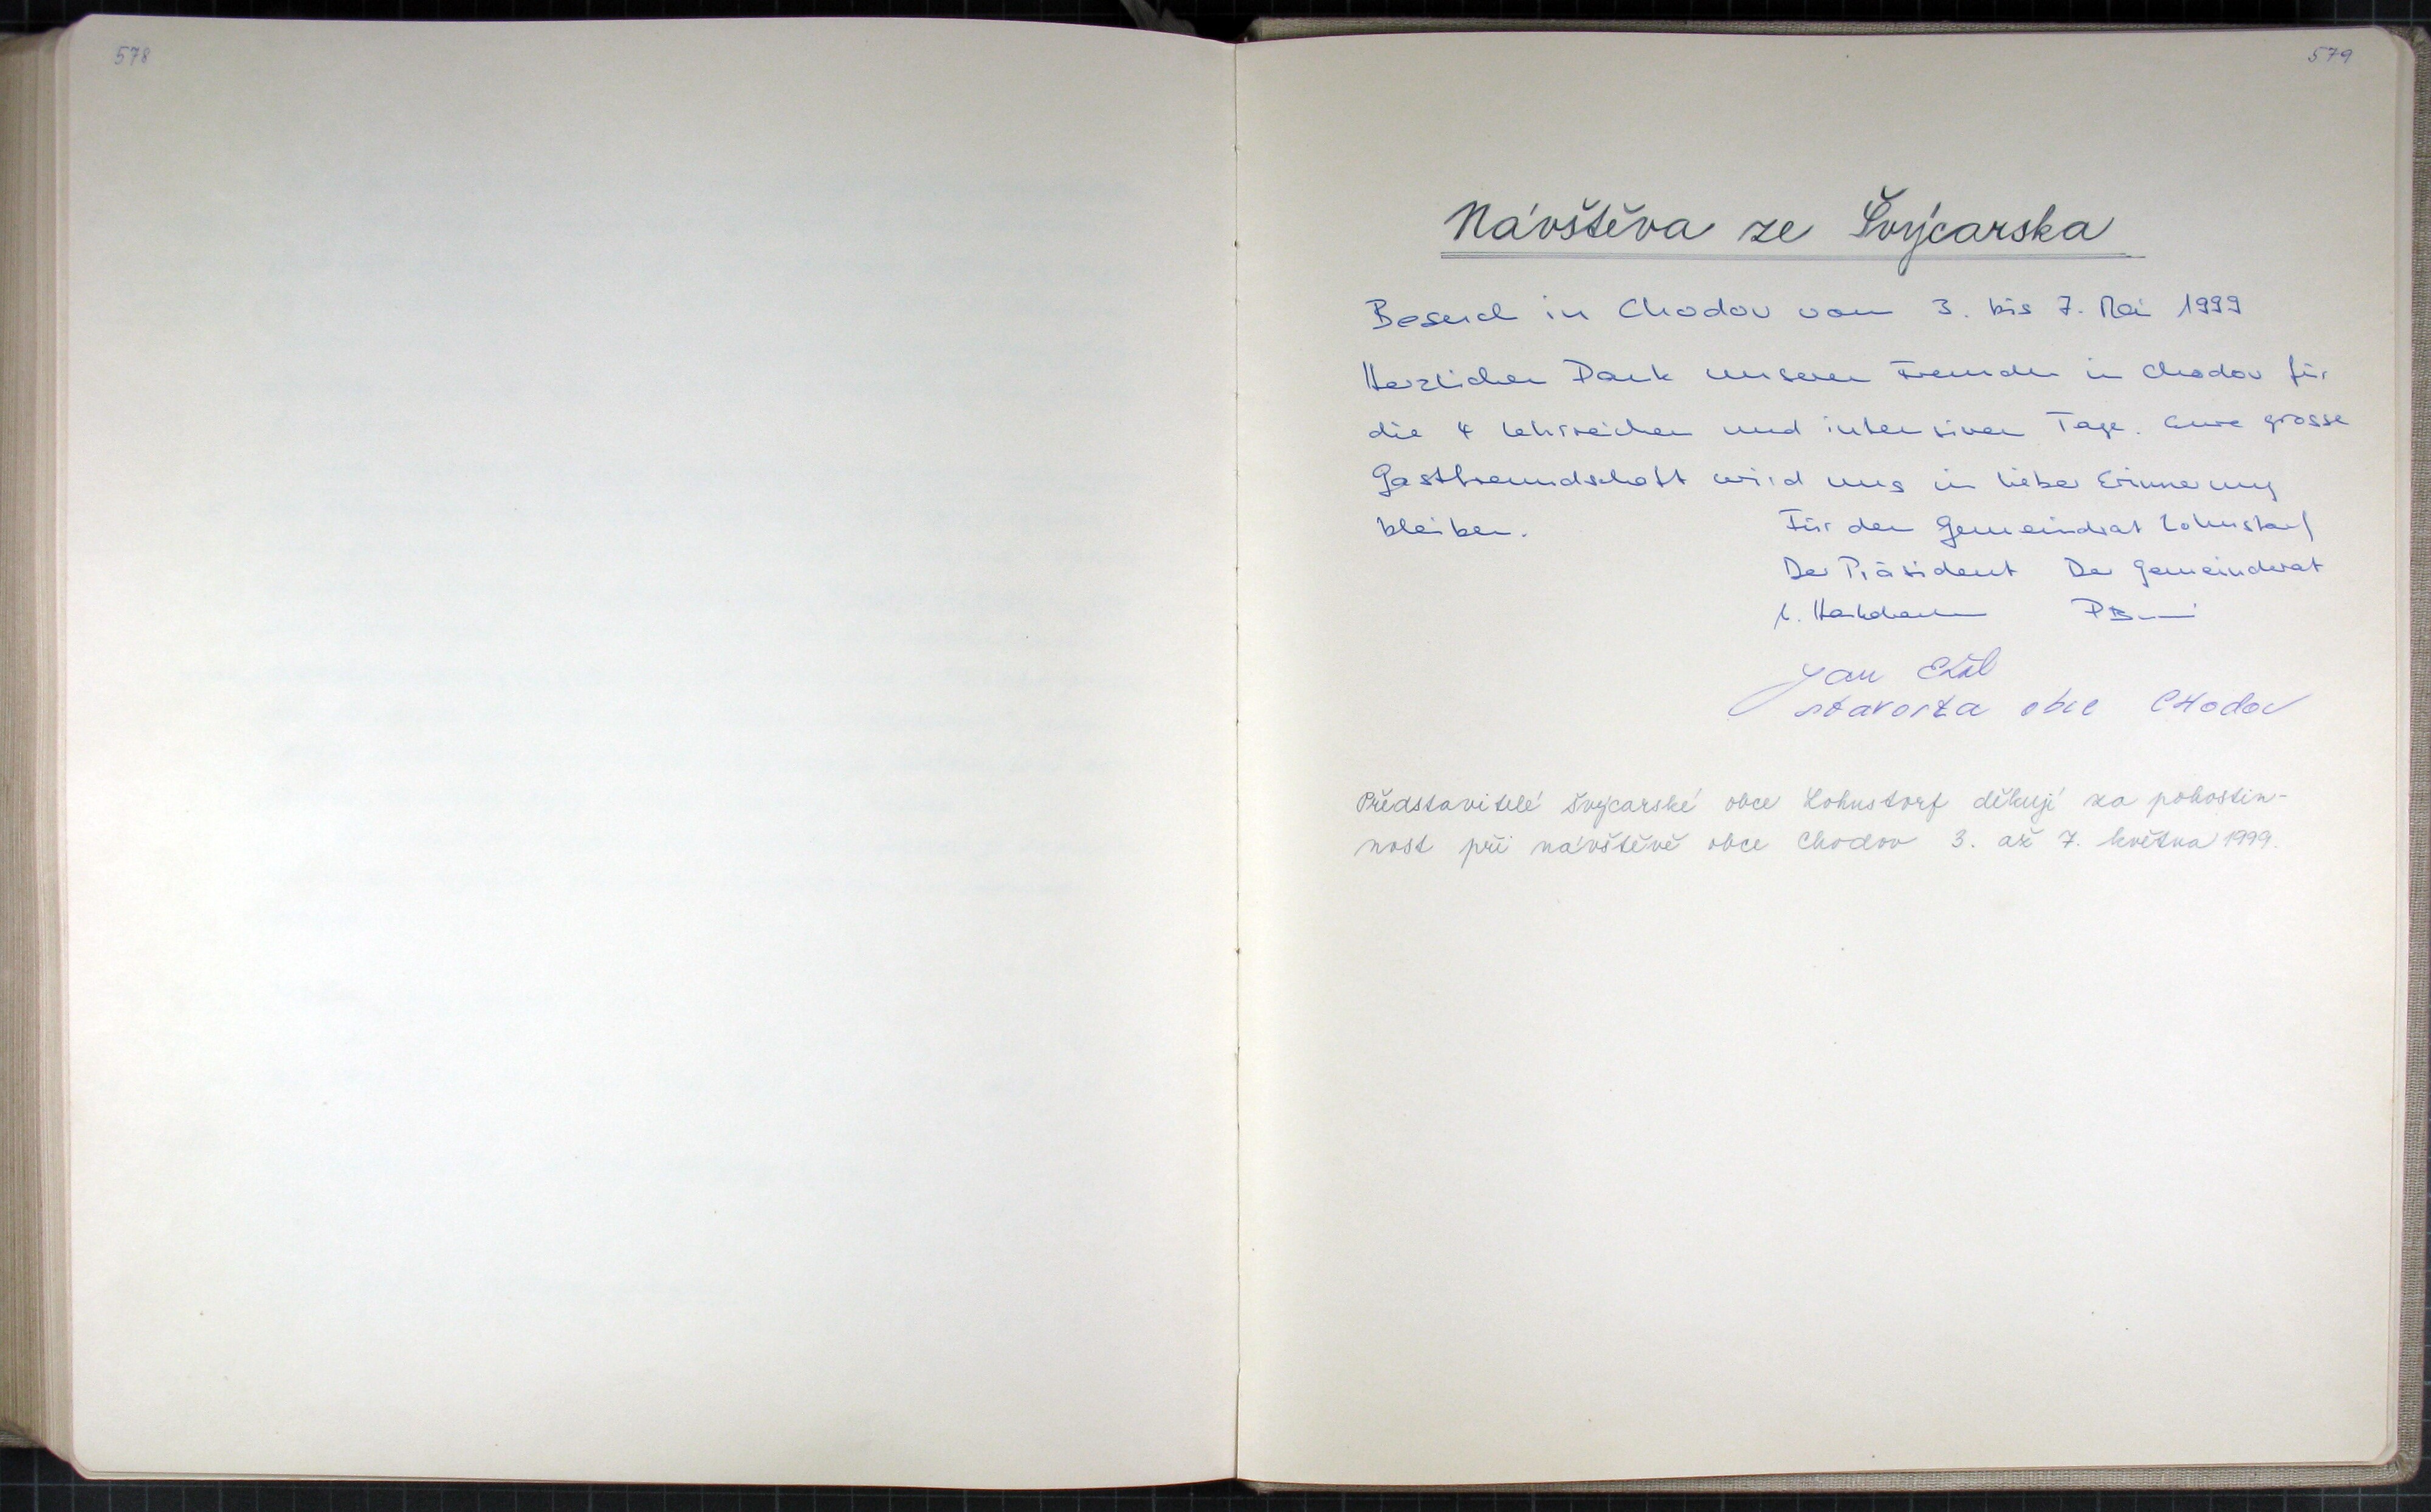 578
579
Návštěva ze Švýcarska
Besuch in Chodov vom 3. bis 7. Mai 1999
Herzlichen Dank unseren Freunden in Chodov für
die 4 lehrreichen und intensiven Tage. Eure grosse
Gastfreundschaft wird uns in lieber Erinnerung
bleiben.
Für den Gemeindrat Lohnstorf
Der Präsident Der Gemeinderat
Jan
starosta obce CHodov
Představitelé švýcarské obce Lohnstorf děkují za pohostin-
nost při návštěvě obce Chodov 3. až 7. května 1999.